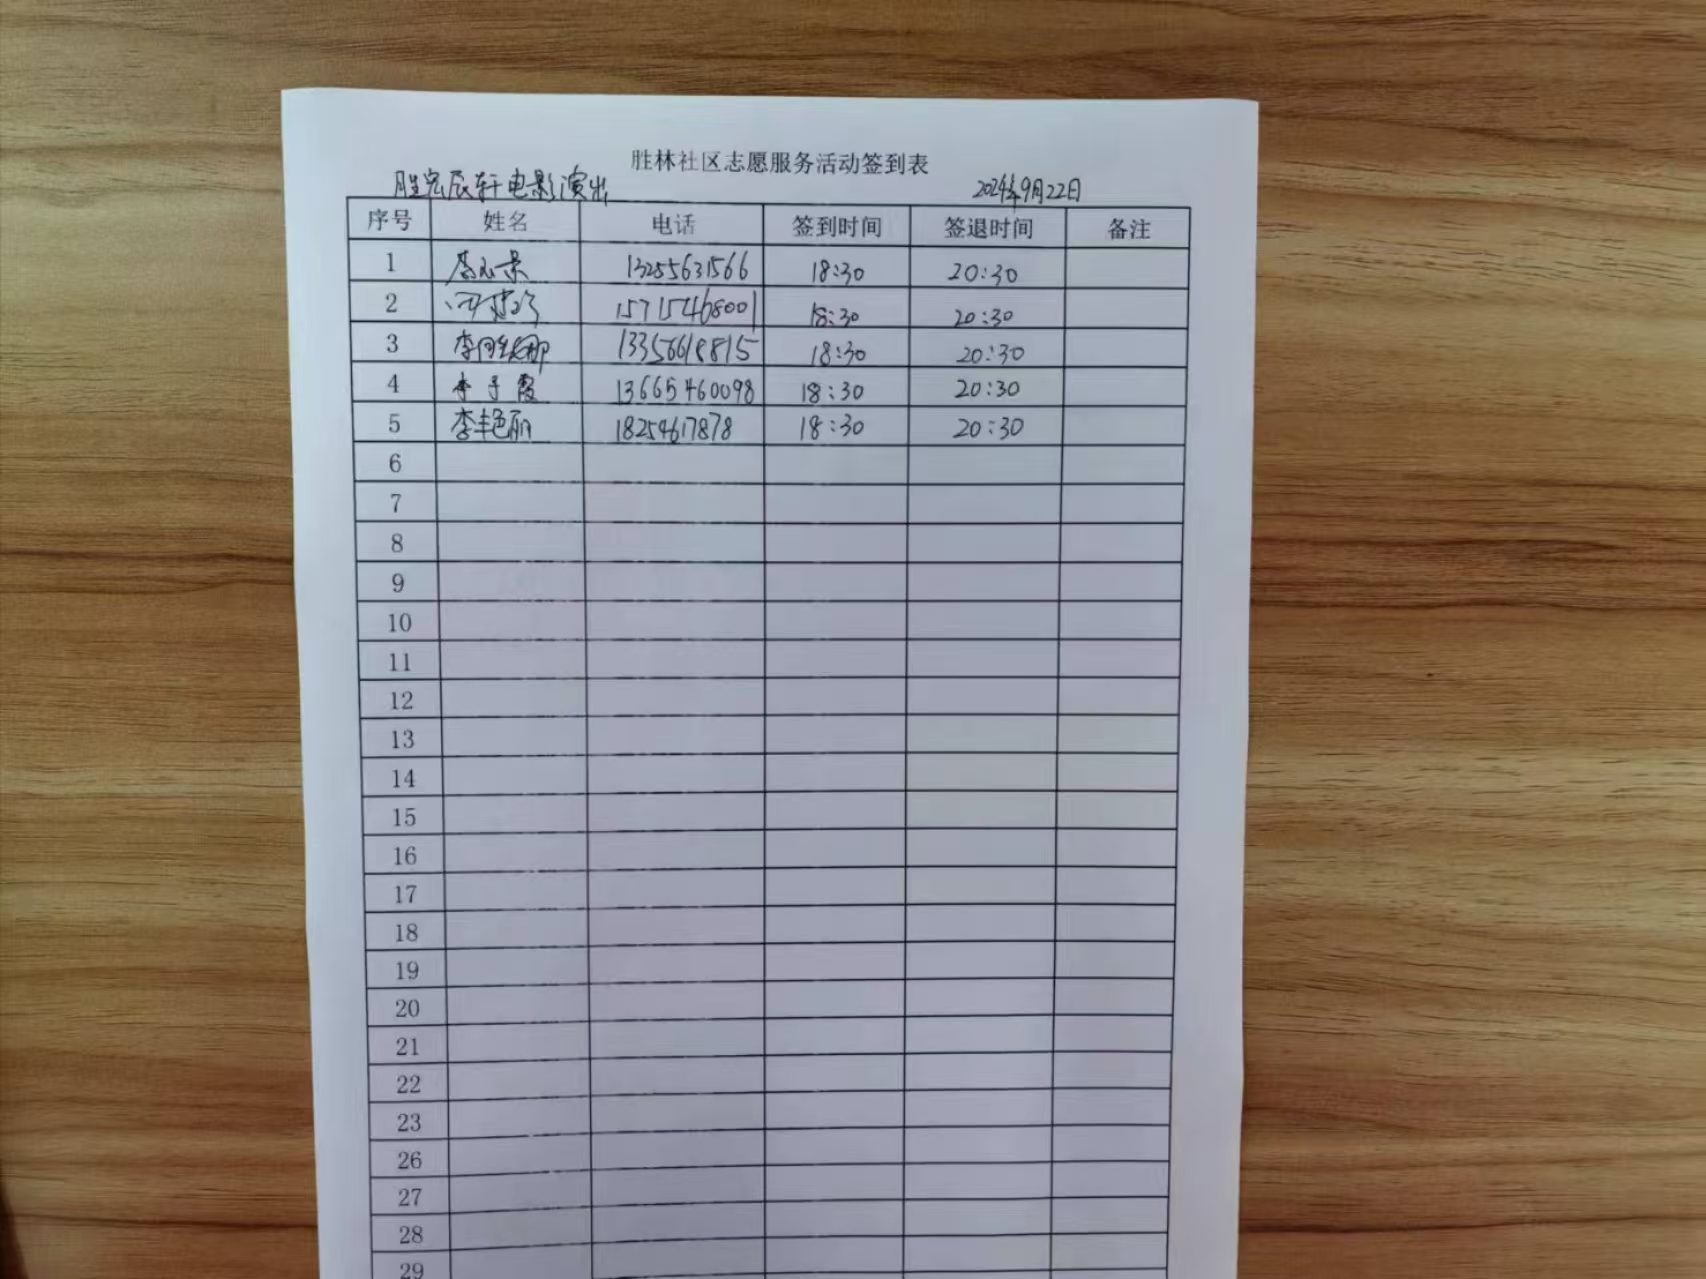 胜林社区志愿服务活动签到表
胜宏辰轩电影演出 2024年9月22日
序号 姓名 电话 签到时间 签退时间 备注
1 13255631566 18:30 20:30
2 15715468001 18:30 20:30
3 李 娜 13356618815 18:30 20:30
4 李子霞 13665460098 18:30 20:30
5 李艳丽 18254617878 18:30 20:30
6
7
8
9
10
11
12
13
14
15
16
17
18
19
20
21
22
23
26
27
28
29